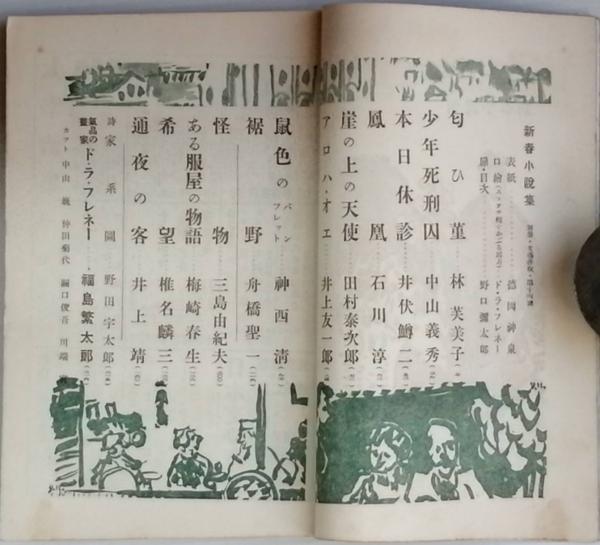 新春小説集
表紙 德岡神泉
口繪 ド・ラ・フレネー
扉・目次 野口彌太郎
匂ひ菫 林芙美子
少年死刑囚 中山義秀
本日休診 井伏鱒二
鳳凰 石川淳
崖の上の天使 田村泰次郎
アロハ・オエ 井上友一郎
鼠色のパンフレット 神西清
裾野 舟橋聖一
怪物 三島由紀夫
ある服屋の物語 梅崎春生
希望 椎名麟三
通夜の客 井上靖
詩 家系圖 野田宇太郎
氣品の畫家 ド・ラ・フレネー 福島繁太郎
カット 中山巍 仲田菊代